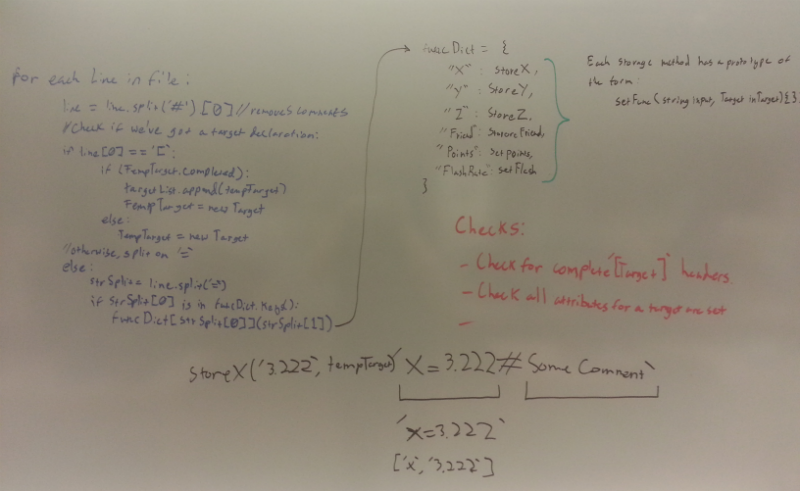 For each Line in file:
line = line.split('#')[0] //removes comments
//Check if we've got a target declaration:
if line[0] == '[':
if (TempTarget.completed):
targetList.append(tempTarget)
TempTarget = new Target
else:
TempTarget = new Target
//otherwise, split on '='
else:
strSplit = line.split('=')
if strSplit[0] is in funcDict.keys():
funcDict[strSplit[0]](strSplit[1])
funcDict = {
"X" : StoreX,
"Y" : StoreY,
"Z" : StoreZ,
"Friend":
"Points": setpoints,
"FlashRate": setFlash
}
Each storage method has a prototype of
the form:
setFunc(string input, Target inTarget){}
Checks:
- Check for complete '[Target]' headers.
- Check all attributes for a target are set
-
storeX('3.222', tempTarget) 'X=3.222# Some Comment'
'X=3.222'
['x','3.222']